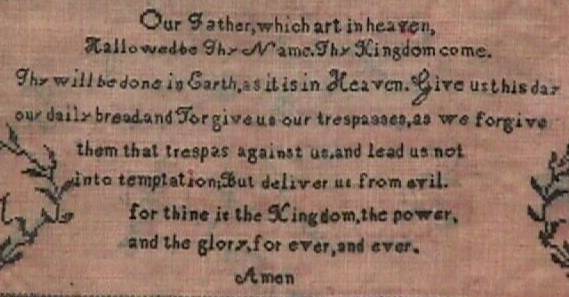 Our Father, which art in heaven,
Hallowed be Thy Name. Thy Kingdom come.
Thy will be done in Earth, as it is in Heaven. Give us this day
our daily bread. and Forgive us our trespasses, as we forgive
them that trespas against us. and lead us not
into temptation; But deliver us from evil.
for thine is the Kingdom, the power,
and the glory, for ever, and ever.
Amen